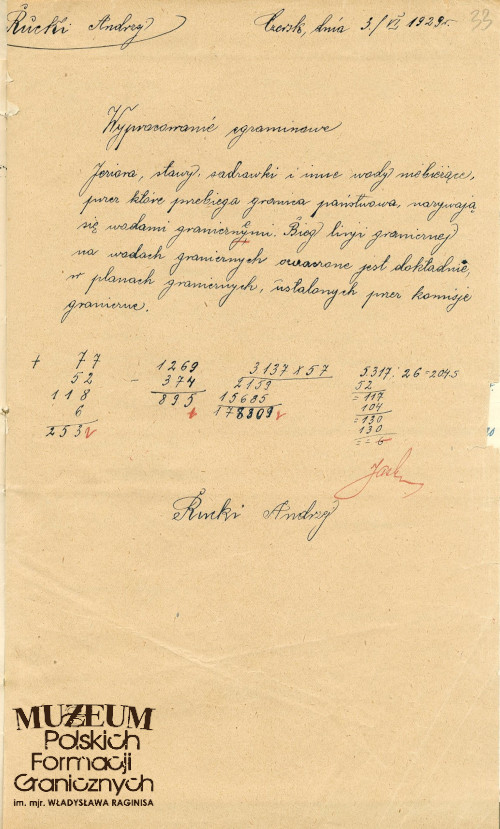 Rucki Andrzej
Czersk, dnia 3/VII 1929r.
33
Wypracowanie egzaminowe
Jeziora, stawy, sadzawki i inne wody niebieżące,
przez które przebiega granica państwowa, nazywają
się wodami granicznymi. Bieg linji granicznej
na wodach granicznych oznaczone jest dokładnie,
w planach granicznych, ustalonych przez komisje
graniczne.
+ 77
52
118
6
253
1269
- 374
895
3137 x 57
2159
15685
178809
5317 : 26 = 2045
52
= 117
104
= 130
130
= = 6
Rucki Andrzej
MUZEUM
Polskich
Formacji
Granicznych
im. mjr. WŁADYSŁAWA RAGINISA